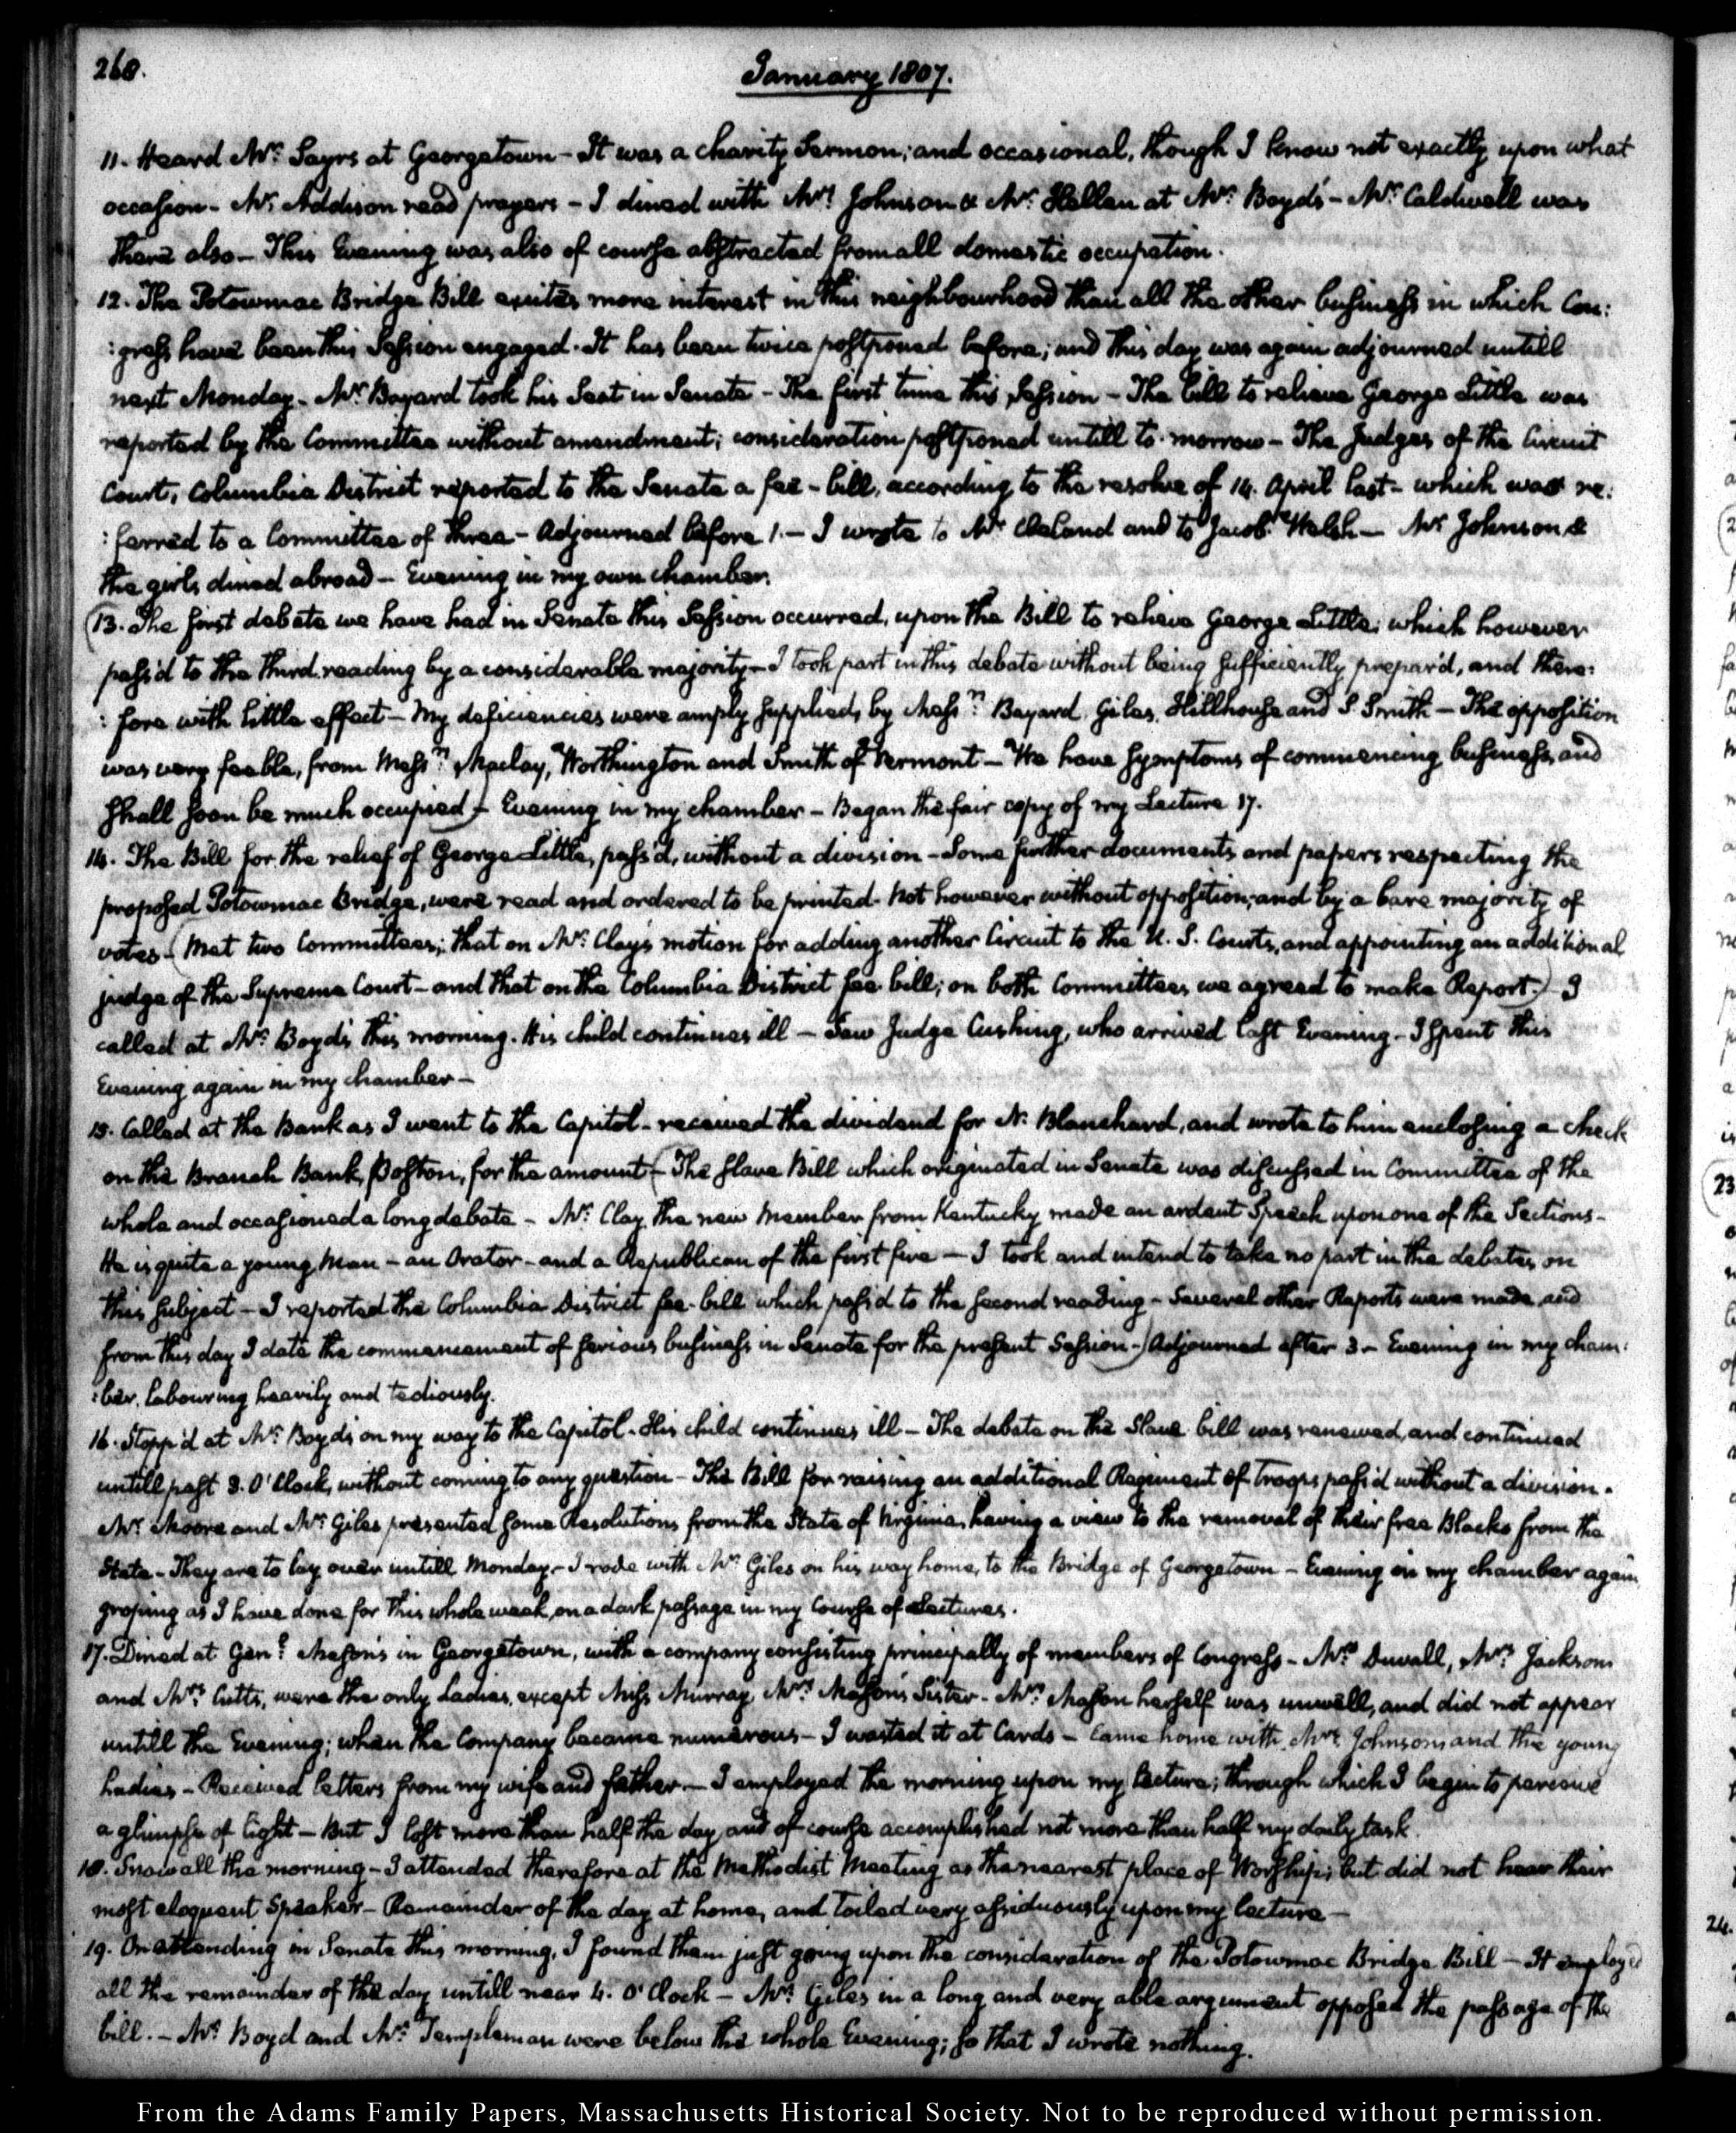 268.
January 1807.
11. Heard Mr. Sayrs at Georgetown - It was a charity Sermon; and occasional, though I know not exactly upon what
occasion - Mr. Addison read prayers - I dined with Mrs. Johnson & Mr. Hellen at Mr. Boyd's - Mr. Caldwell was
there also - This Evening was also of course abstracted from all domestic occupation.
12. The Potowmac Bridge Bill excites more interest in this neighbourhood than all the other business in which Con:
:gress have been this Session engaged. It has been twice postponed before; and this day was again adjourned untill
next Monday - Mr. Bayard took his Seat in Senate - The first time this Session - The bill to relieve George Little was
reported by the Committee without amendment; consideration postponed untill to-morrow - The Judges of the Circuit
Court, Columbia District reported to the Senate a fee-bill, according to the resolve of 14. April last - which was re:
:ferred to a Committee of three - Adjourned before 1. - I wrote to Mr. Cleland and to Jacob Welsh - Mrs. Johnson &
the girls dined abroad - Evening in my own chamber.
(13. The first debate we have had in Senate this Session occurred, upon the Bill to relieve George Little; which however
pass'd to the third reading by a considerable majority - I took part in this debate without being sufficiently prepar'd, and there:
:fore with little effect - My deficiencies were amply supplied, by Messrs. Bayard, Giles, Hillhouse and S. Smith - The opposition
was very feeble, from Messrs. Maclay, Worthington and Smith of Vermont - We have symptoms of commencing business, and
shall soon be much occupied) - Evening in my chamber - Began the fair copy of my Lecture 17.
14. The Bill for the relief of George Little, pass'd, without a division - Some further documents and papers respecting the
proposed Potowmac Bridge, were read and ordered to be printed - Not however without opposition; and by a bare majority of
votes - (Met two Committees; that on Mr. Clay's motion for adding another Circuit to the U. S. Courts, and appointing an additional
judge of the Supreme Court - and that on the Columbia District fee bill; on both Committees we agreed to make Report.) I
called at Mr. Boyd's this morning. His child continues ill - Saw Judge Cushing, who arrived last Evening - I spent this
Evening again in my chamber -
15. Called at the Bank as I went to the Capitol - received the dividend for N. Blanchard, and wrote to him enclosing a check
on the Branch Bank, Boston, for the amount - (The slave Bill which originated in Senate was discussed in Committee of the
whole and occasioned a long debate - Mr. Clay the new Member from Kentucky made an ardent Speech upon one of the Sections -
He is quite a young Man - an Orator - and a Republican of the first fire - I took and intend to take no part in the debates on
this subject - I reported the Columbia District fee-bill which pass'd to the second reading - Several other Reports were made, and
from this day I date the commencement of serious business in Senate for the present Session -) Adjourned after 3 - Evening in my cham:
:ber, labouring heavily and tediously.
16. Stopp'd at Mr. Boyd's on my way to the Capitol. His child continues ill - The debate on the Slave bill was renewed, and continued
untill past 3. O'Clock, without coming to any question - The Bill for raising an additional Regiment of troops pass'd without a division.
Mr. Moore and Mr. Giles presented some Resolutions from the State of Virginia, having a view to the removal of their free Blacks from the
State - They are to lay over untill Monday - I rode with Mr. Giles on his way home, to the Bridge of Georgetown - Evening in my chamber again
groping as I have done for this whole week, on a dark passage in my Course of Lectures.
17. Dined at Genl. Mason's in Georgetown, with a company consisting principally of members of Congress - Mrs. Duvall, Mrs. Jackson
and Mrs. Cutts, were the only Ladies, except Miss Murray, Mrs. Mason's Sister - Mrs. Mason herself was unwell, and did not appear
untill the Evening; when the Company became numerous - I wasted it at Cards - Came home with Mrs. Johnson and the young
Ladies - Received letters from my wife and father. - I employed the morning upon my lecture; through which I begin to perceive
a glimpse of light - But I lost more than half the day, and of course accomplished not more than half my daily task.
18. Snow all the morning - I attended therefore at the Methodist Meeting as the nearest place of Worship; but did not hear their
most eloquent Speaker - Remainder of the day at home, and toiled very assiduously upon my lecture -
19. On attending in Senate this morning, I found them just going upon the consideration of the Potowmac Bridge Bill - It employed
all the remainder of the day untill near 4. O'Clock - Mr. Giles in a long and very able argument opposed the passage of the
bill. - Mr. Boyd and Mr. Templeman were below the whole Evening; so that I wrote nothing.
23
24.
From the Adams Family Papers, Massachusetts Historical Society. Not to be reproduced without permission.